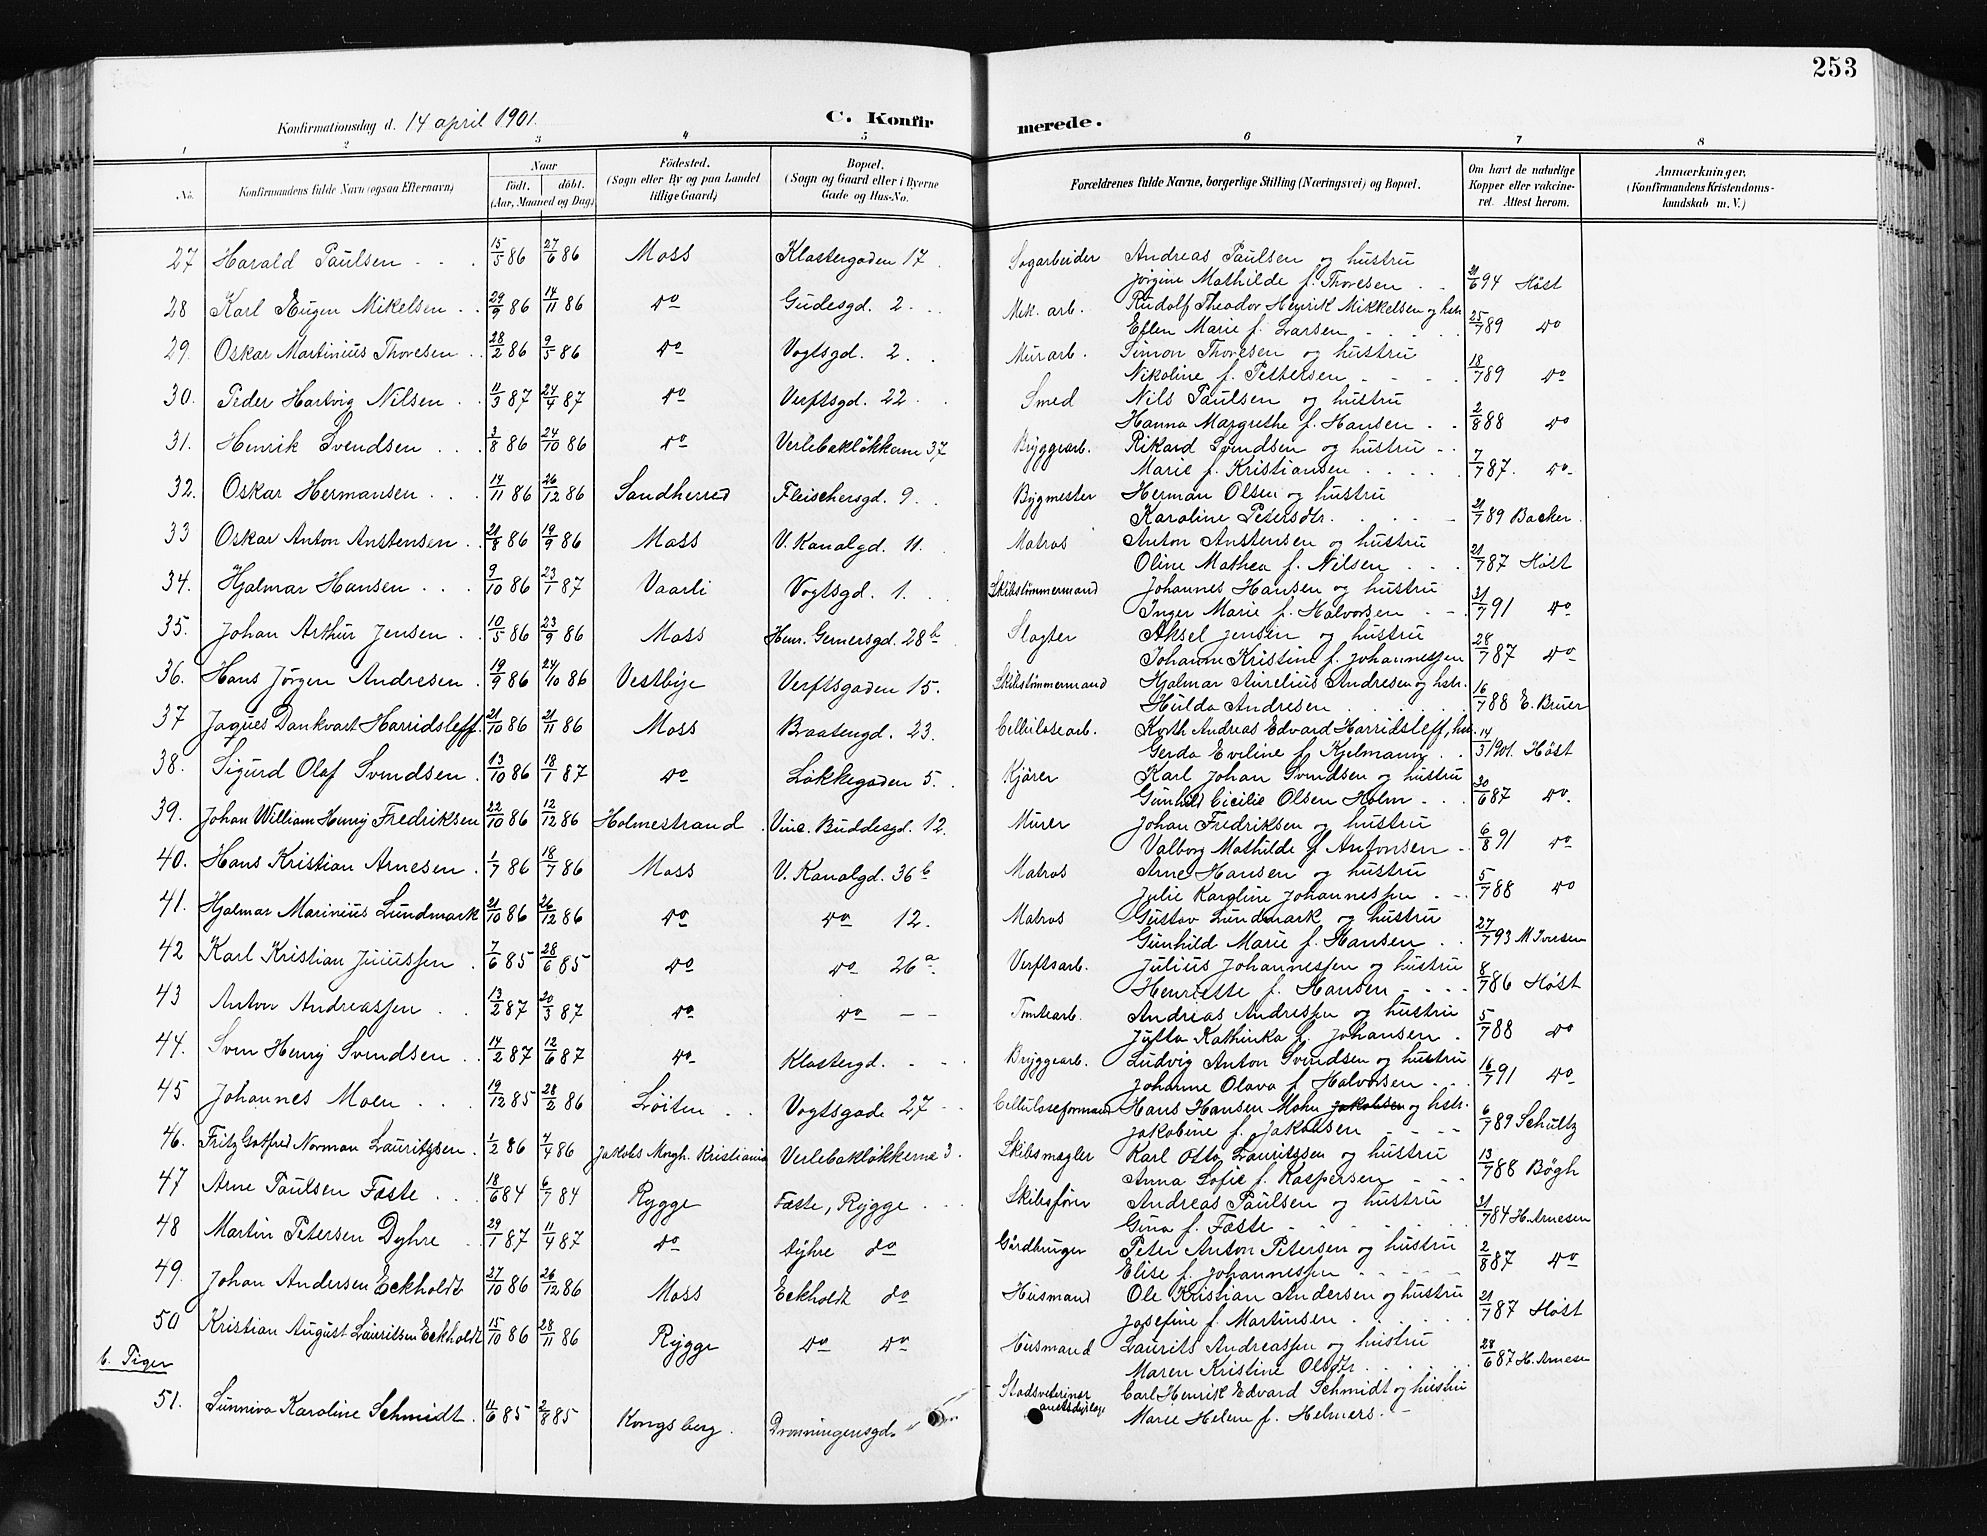 253
Konfirmationsdag d. 14 april 1901.
C. Konfirmerede.
1 2 3 4 5 6 7 8
No. Konfirmandens fulde Navn (ogsaa Efternavn) Naar födt. döbt. (Aar, Maaned og Dag) Födested. (Sogn eller By og paa Landet tillige Gaard) Bopæl. (Sogn og Gaard eller i Byerne Gade og Hus-No. Forældrenes fulde Navne, borgerlige Stilling (Næringsvei) og Bopæl. Om havt de naturlige Kopper eller vakcineret. Attest herom. Anmærkninger, (Konfirmandens Kristendomskundskab m. V.)
27 Harald Paulsen 15/5 86 27/6 86 Moss Klostergaden 17 Sagarbeider Andreas Paulsen og hustru
Jørgine Mathilde f. Thoresen 21/6 94 Höst
28 Karl Eugen Mikelsen 29/9 86 14/11 86 do Gudesgd. 2 Mek. arb. Rudolf Theodor Henrik Mikkelsen og hstr.
Ellen Marie f. Larsen 25/7 89 do
29. Oskar Martinius Thoresen 28/2 86 9/5 86 do Vogtsgd. 2 Murarb. Simon Thoresen og hustru
Nikoline f. Pettersen 18/7 89 do
30. Peder Hartvig Nilsen 11/3 87 24/4 87 do Verftsgd. 22 Smed Nils Paulsen og hustru
Hanna Margrethe f. Hansen 2/8 88 do
31. Henrik Svendsen 3/8 86 24/10 86 do Verlebakløkkerne 37 Bryggearb. Rikard Svendsen og hustru
Marie f. Kristiansen 7/7 87. do
32. Oskar Hermansen 14/11 86 26/12 86 Sandherred Fleischersgd. 9 Bygmester Herman Olsen og hustru
Karoline Petersdtr. 21/7 89 Backer.
33 Oskar Anton Anstensen 21/8 86 19/9 86 Moss V. Kanalgd. 11. Matros Anton Anstensen og hustru
Oline Mathea f. Nilsen 21/7 87 Höst
34. Hjalmar Hansen 9/10 86 23/1 87 Vaarli Vogtsgd. 1. Skibstømmermand Johannes Hansen og hustru
Inger Marie f. Halvorsen 31/7 91 do
35. Johan Arthur Jensen 10/5 86 23/9 86 Moss Henr. Gernersgd. 28b Slagter Aksel Jensen og hustru
Johanne Kristine f. Johannessen 28/7 87 do
36. Hans Jørgen Andresen 19/9 86 24/10 86 Vestbye Verftsgaden 15. Skibstømmermand Hjalmar Aurelius Andresen og hstr.
Hulda Andresen 16/7 88 E. Bruer
37 Jaques Dankvart Harridsleff 21/10 86 21/11 86 Moss Braatengd. 23. Cellulosearb. Korth Andreas Edvard Harridsleff, hus.
Gerda Eveline f. Kjelmann 14/3 1901. Höst
38. Sigurd Olaf Svendsen 13/10 86 18/1 87 do Løkkegaden 5. Kjører Karl Johan Svendsen og hustru
Gunhild Cicilie Olsen Holm 30/6 87 do.
39. Johan William Henry Fredriksen 22/10 86 12/12 86 Holmestrand Vinc. Buddesgd. 12. Murer Johan Fredriksen og hustru
Valborg Mathilde f. Antonsen 6/8 91 do
40. Hans Kristian Arnesen 1/7 86 18/7 86 Moss V. Kanalgd. 36b Matros Arne Hansen og hustru
Julie Karoline Johannessen 5/7 88 do
41. Hjalmar Marinius Lundmark 21/10 86 26/12 86 do do 12. Matros Gustav Lundmark og hustru
Gunhild Marie f. Hansen 27/7 93 M Iversen
42 Karl Kristian Juiussen 7/6 85 28/6 85 do do 26a. Verftsarb. Julius Johannessen og hustru
Henriette f. Hansen 8/7 86 Höst
43 Anton Andreassen 13/2 87 20/3 87 do do Tomtearb. Andreas Andresen og hustru
Jutta Kathinka f. Johansen 5/7 88 do
44. Sven Henry Svendsen 14/2 87 12/6 87 do Klostergd. Bryggearb. Ludvig Anton Svendsen og hustru
Johanne Olava f. Halvorsen 16/7 91 do
45 Johannes Moen 19/12 85 28/2 86 Löiten Vogtsgade 27 Celluloseformand Hans Hansen Mohn Jakobsen og hstr.
Jakobine f. Jakobsen 6/7 89 Schultz
46. Fritz Gotfred Norman Lauritzsen 1/2 86 4/4 86 Jakobs Mngh. Kristiania Verlebakløkkerne 3. Skibsmægler Karl Otto Lauritssen og hustru
Anna Sofie f. Kaspersen 13/7 88 Bögh
47 Arne Paulsen Fæste 18/6 84 6/7 84 Rygge Fæste, Rygge Skibsfører Andreas Paulsen og hustru
Gina f. Fæste 31/7 84 H. Arnesen
48 Martin Petersen Dyhre 29/1 87 11/4 87 do Dyhre do Gårdbruger Peter Anton Petersen og hustru
Elise f. Johannessen 2/8 87 do
49. Johan Andersen Eckholdt 27/10 86 26/12 86 Moss Eckholdt do Husmand Ole Kristian Andersen og hustru
Josefine f. Martinsen 21/7 87 Höst
50 Kristian August Lauritsen Eckholdt 15/10 86 28/11 86 Rygge do do Husmand Laurits Andreassen og hustru
Maren Kristine Olsdtr. 28/6 87 H. Arnesen
b. Piger
51. Sunniva Karoline Schmidt 11/6 85 2/8 85 Kongsberg. Dronningensgd. Stadsveterinær Carl Henrik Edvard Schmidt og hustru
amtsdyrlæge Marie Helene f. Helmers.